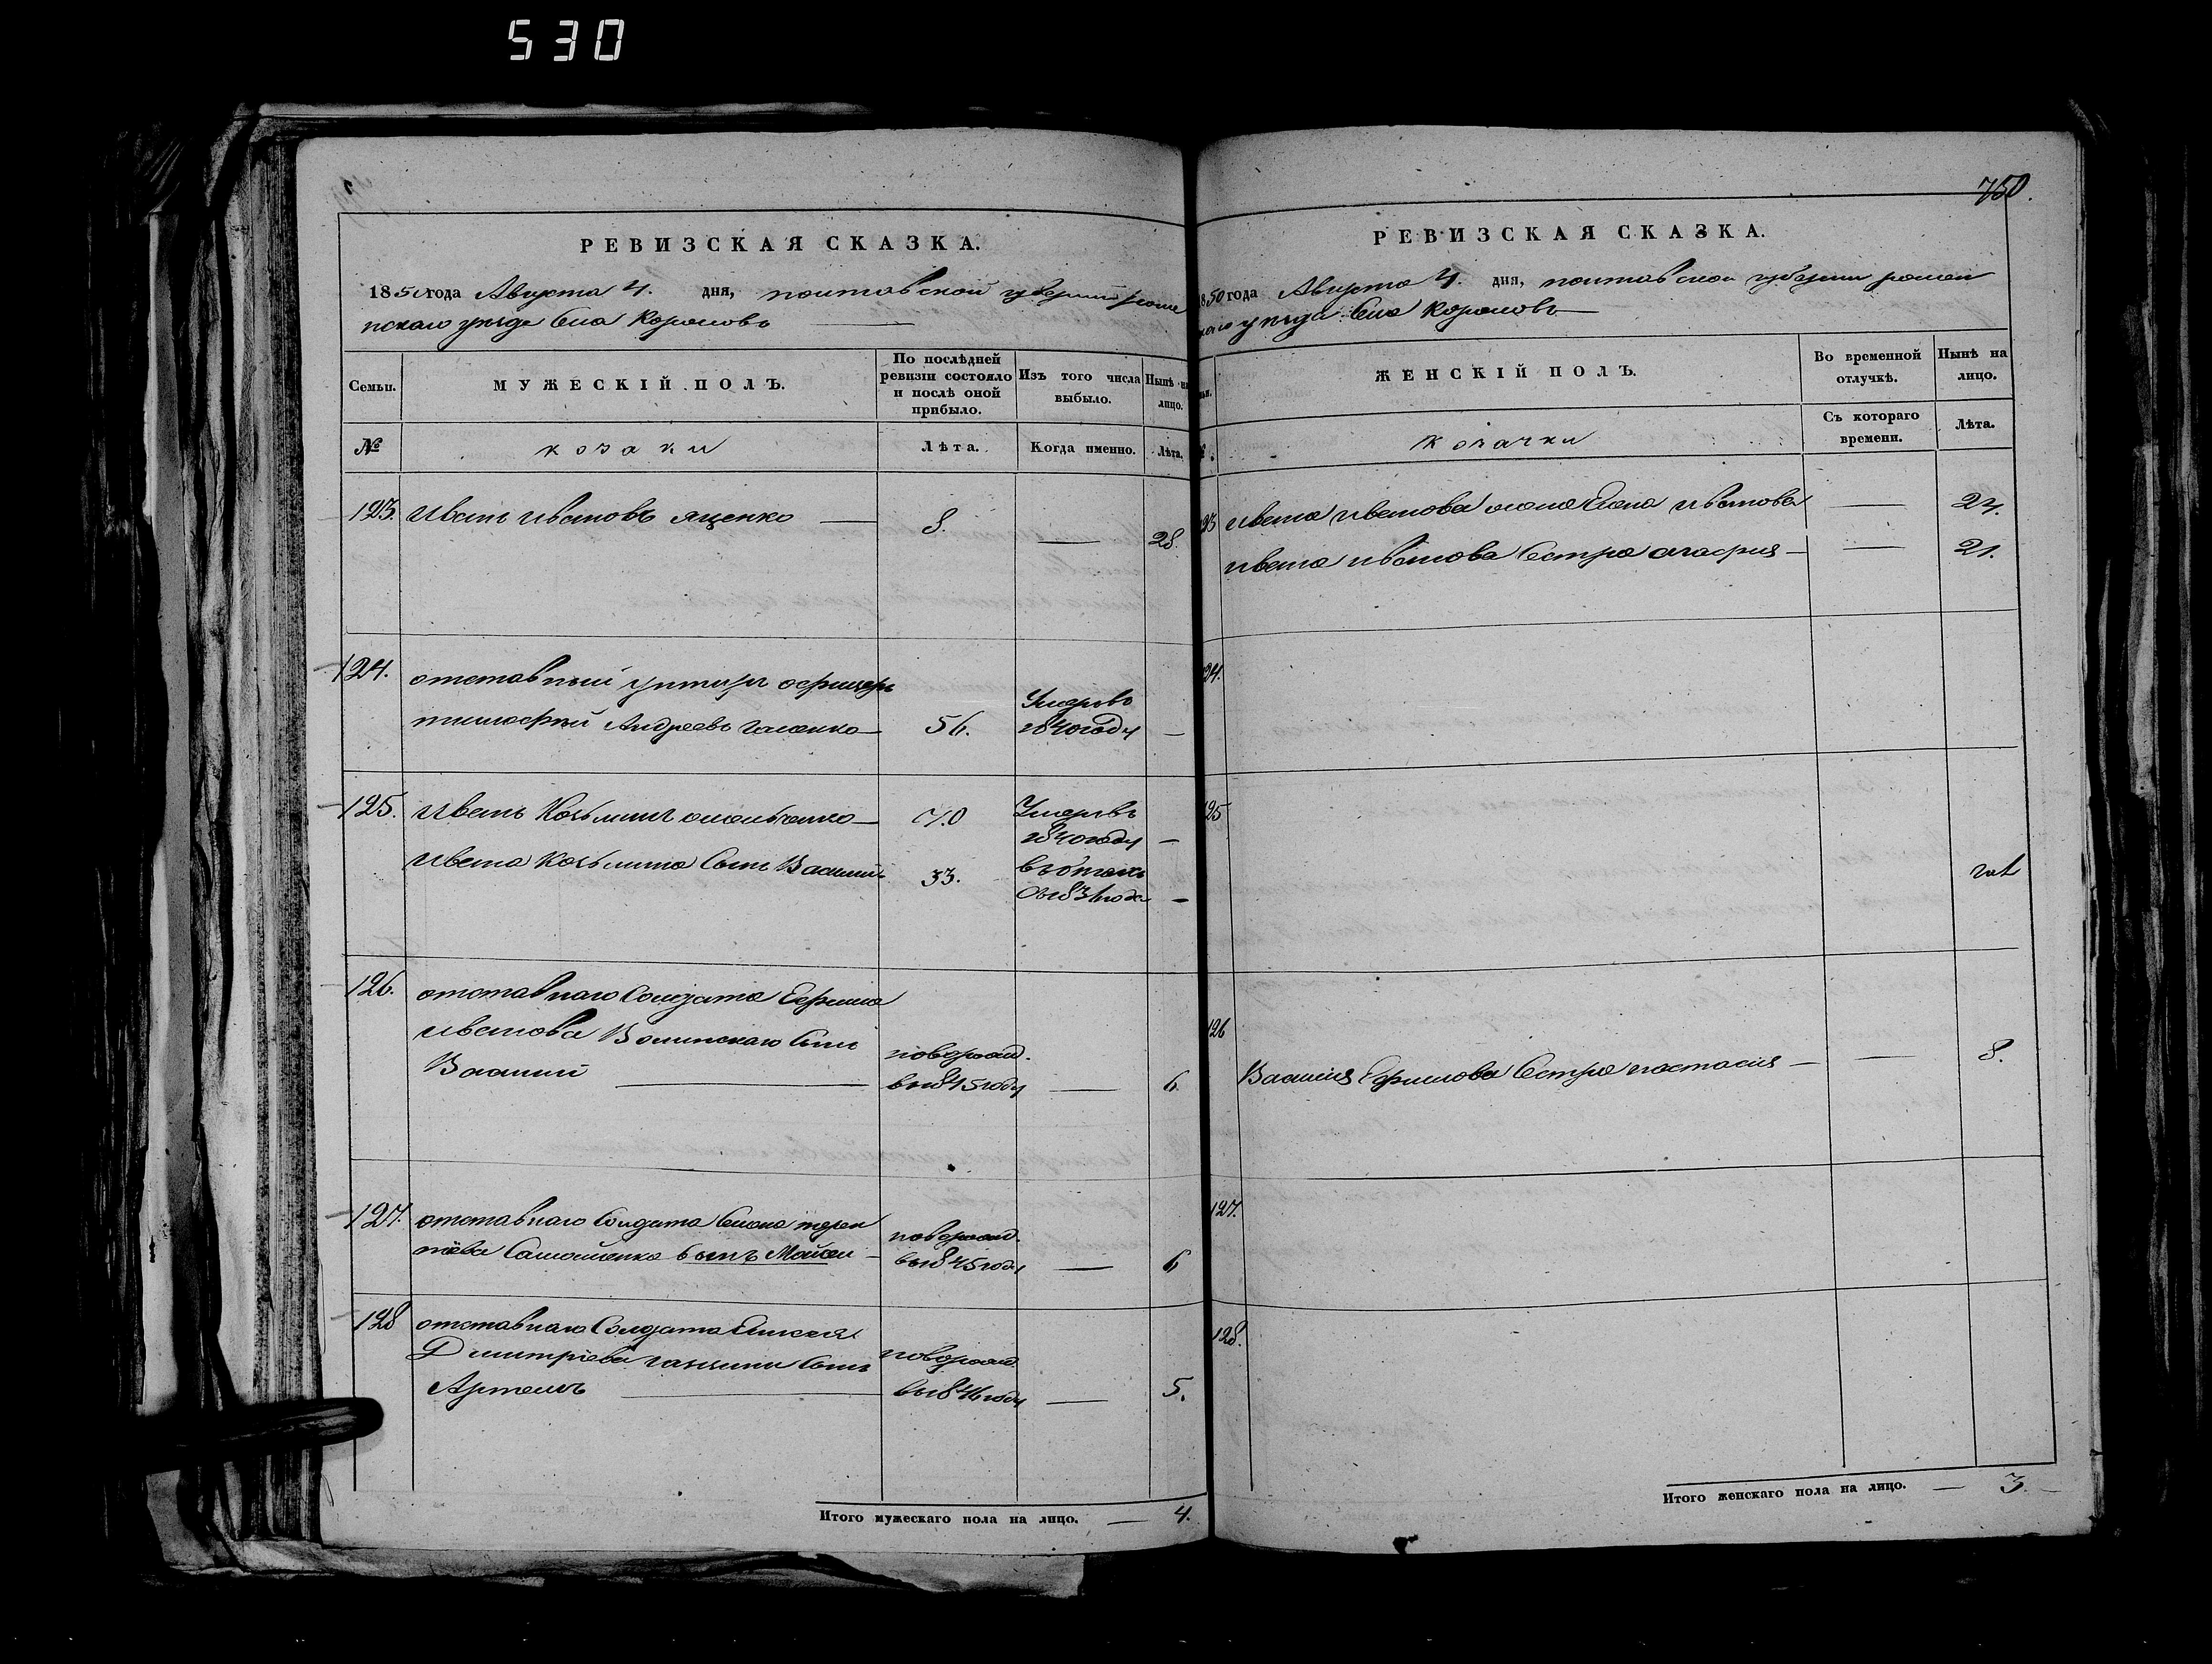 530
750.
РЕВИЗСКАЯ СКАЗКА.
1850 года Августа 4. дня, полтавской губернии роме
нскаго уезда Села Королловъ
Семьи.
МУЖЕСКІЙ ПОЛЪ.
По послѣдней ревизіи состояло и послѣ оной прибыло.
Изъ того числа выбыло.
Нынѣ на лицо.
№
козаки
Лѣта.
Когда именно.
Лѣта.
123. Иванъ Ивановъ Яценко — 8. — 28.
124. отставный унтеръ офицеръ
тимофей Андреевъ — 56. Умеръ въ 1840 году —
125. Иванъ Козьминъ — 70 Умеръ въ 1840 году —
Ивана Козьмина Сынъ Василий 33. въ бегахъ Съ 1831 года —
126. отставнаго Солдата Ефима
Иванова Волинскаго Сынъ
Василий — новорожд. въ 1845 году — 6.
127. отставнаго Солдата Семена терен
тіева Самойленка Сынъ Мойсей — новорожд. въ 1845 году — 6
128 отставнаго Солдата Елисея
Дмитріева Сынъ
Артемъ — новорожд. въ 1846 году — 5.
Итого мужескаго пола на лицо. — 4.
РЕВИЗСКАЯ СКАЗКА.
1850 года Августа 4. дня, полтавской губернии ромен
скаго уезда Села
ЖЕНСКІЙ ПОЛЪ.
Во временной отлучкѣ.
Нынѣ на лицо.
козачки
Съ котораго времени.
Лѣта.
123 Ивана Иванова жена Елена Иванова — 24.
Ивана Иванова Сестра Агафия — — 21.
124.
125
126
Василия Ефимова Сестра настасия — — 8.
127.
128.
Итого женскаго пола на лицо. — 3.